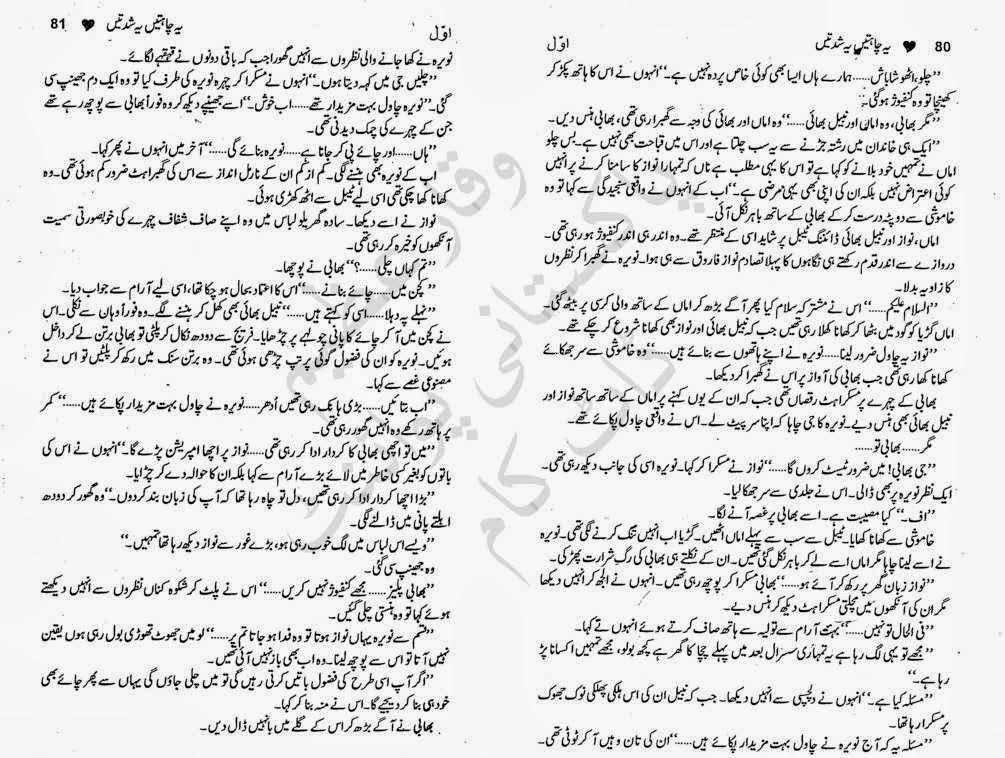 80 ♥ یہ چاہتیں یہ شدتیں اوّل
”چلو، اٹھو شاباش...... ہمارے ہاں ایسا بھی کوئی خاص پردہ نہیں ہے۔“ انہوں نے اس کا ہاتھ پکڑ کر
کھینچا تو وہ کنفیوژ ہو گئی۔
”مگر بھابی، وہ اماں اور نبیل بھائی......“ وہ اماں اور بھائی کی وجہ سے گھبرا رہی تھی، بھابی ہنس دیں۔
”ایک ہی خاندان میں رشتہ جڑنے سے یہ سب چلتا ہے اور اس میں قباحت بھی نہیں ہے۔ بس چلو
اماں نے تمہیں خود بلانے کو کہا ہے تو اس کا یہی مطلب ہے ناں کہ تمہارا نواز کا سامنا کرنے پر انہیں
کوئی اعتراض نہیں بلکہ ان کی اپنی بھی یہی مرضی ہے۔“ اب کے انہوں نے واقعی سنجیدگی سے کہا تو وہ
خاموشی سے دوپٹہ درست کر کے بھابی کے ساتھ باہر نکل آئی۔
اماں، نواز اور نبیل بھائی ڈائننگ ٹیبل پر شاید اسی کے منتظر تھے۔ وہ اندر ہی اندر کنفیوژ ہو رہی تھی۔
دروازے سے اندر قدم رکھتے ہی نگاہوں کا پہلا تصادم نواز فاروق سے ہی ہوا۔ نویرہ نے گھبرا کر نظروں
کا زاویہ بدلا۔
”السلام علیکم......“ اس نے مشترکہ سلام کیا پھر آگے بڑھ کر اماں کے ساتھ والی کرسی پر بیٹھ گئی۔
اماں گڑیا کو گود میں بٹھا کر کھانا کھلا رہی تھیں جب کہ نبیل بھائی اور نواز بھی کھانا شروع کر چکے تھے۔
”نواز یہ چاول ضرور لینا...... نویرہ نے اپنے ہاتھوں سے بنائے ہیں......“ وہ خاموشی سے سر جھکائے
کھانا کھا رہی تھی جب بھابی کی آواز پر اس نے گھبرا کر دیکھا۔
بھابی کے چہرے پر مسکراہٹ رقصاں تھی جب کہ ان کے یوں کہنے پر اماں کے ساتھ ساتھ نواز اور
نبیل بھائی بھی ہنس دیے۔ نویرہ کا جی چاہا کہ اپنا سر پیٹ لے۔ اس نے واقعی چاول پکائے تھے۔
مگر...... بھابی تو......
”جی بھابی! میں ضرور ٹیسٹ کروں گا......“ نواز نے مسکرا کر کہا۔ نویرہ اسی کی جانب دیکھ رہی تھی۔
ایک نظر نویرہ پر بھی ڈالی۔ اس نے جلدی سے سر جھکا لیا۔
”اف۔“ کیا مصیبت ہے۔ اسے بھابی پر غصہ آنے لگا۔
خاموشی سے کھانا کھایا۔ ٹیبل سے سب سے پہلے اماں اٹھیں۔ گڑیا اب انہیں تنگ کرنے لگی تھی۔ نویرہ
نے اسے لینا چاہا مگر اماں اسے لے کر باہر نکل گئی تھیں۔ ان کے نکلتے ہی بھابی کی رگِ شرارت پھڑکی۔
”نواز زبان گھر پر رکھ کر آئے ہو......“ بھابی مسکرا کر پوچھ رہی تھیں۔ انہوں نے الجھ کر انہیں دیکھا
مگر ان کی آنکھوں میں مچلتی مسکراہٹ دیکھ کر ہنس دیے۔
”فی الحال تو نہیں......“ بہت آرام سے تولیہ سے ہاتھ صاف کرتے ہوئے انہوں نے کہا۔
”مجھے تو یہی لگ رہا ہے یہ تمہاری سسرال بعد میں پہلے چچا کا گھر ہے کچھ بولو، مجھے تمہیں اکسانا پڑ
رہا ہے۔“
”مسئلہ کیا ہے۔“ انہوں نے دلچسپی سے انہیں دیکھا۔ جب کہ نبیل ان کی اس ہلکی پھلکی نوک جھوک
پر مسکرا رہا تھا۔
”مسئلہ یہ کہ آج نویرہ نے چاول بہت مزیدار پکائے ہیں......“ ان کی تان وہیں آ کر ٹوٹی تھی۔
یہ چاہتیں یہ شدتیں ♥ 81 اوّل
نویرہ نے کھا جانے والی نظروں سے انہیں گھورا جب کہ باقی دونوں نے قہقہے لگائے۔
”چلیں جی میں کہہ دیتا ہوں۔“ انہوں نے مسکرا کر چہرہ نویرہ کی طرف کیا تو وہ ایک دم جھینپ سی
گئی۔ ”نویرہ چاول بہت مزیدار تھے...... اب خوش۔“ اسے جھینپتے دیکھ کر وہ فوراً بھابی سے پوچھ رہے تھے
جن کے چہرے کی چمک دیدنی تھی۔
”ہاں...... اور چائے پی کر جانا ہے...... نویرہ بنائے گی......“ آخر میں انہوں نے پھر کہا۔
اب کے نویرہ بھی ہنسنے لگی۔ کم از کم ان کے نارمل انداز سے اس کی گھبراہٹ ضرور کم ہوئی تھی۔ وہ
کھانا کھا چکی تھی اسی لیے ٹیبل سے اٹھ کھڑی ہوئی۔
نواز نے اسے دیکھا۔ سادہ گھریلو لباس میں وہ اپنے صاف شفاف چہرے کی خوبصورتی سمیت
آنکھوں کو خیرہ کر رہی تھی۔
”تم کہاں چلی......؟“ بھابی نے پوچھا۔
”کچن میں...... چائے بنانے......“ اس کا اعتماد بحال ہو چکا تھا، اسی لیے آرام سے جواب دیا۔
”نہلے پہ دہلا...... اسی کو کہتے ہیں......“ نبیل بھائی بھی کھل کر ہنسنے لگے۔ وہ فوراً وہاں سے نکلی۔ اس
نے کچن میں آ کر چائے کا پانی چولہے پر چڑھایا۔ فریج سے دودھ نکال کر پلٹی تو بھابی برتن لے کر داخل
ہوئیں۔ نویرہ کو ان کی فضول گوئی پر تپ چڑھی ہوئی تھی۔ وہ برتن سنک میں رکھ کر پلٹیں تو اس نے
مصنوعی غصے سے کہا۔
”اب بتائیں...... بڑی ہانک رہی تھیں اُدھر...... نویرہ نے چاول بہت مزیدار پکائے ہیں......“ کمر
پر ہاتھ رکھے وہ انہیں گھور رہی تھی۔
”میں تو اچھی بھابی کا کردار ادا کر رہی تھی...... نواز پر اچھا امپریشن پڑے گا۔“ انہوں نے اس کی
باتوں کو بغیر کسی خاطر میں لائے بڑے آرام سے کہا بلکہ ان کا حوالہ دے کر چڑایا۔
”بڑا اچھا کردار ادا کر رہی تھیں، دل تو چاہ رہا تھا کہ آپ کی زبان بند کر دوں۔“ وہ گھور کر دودھ
ابلتے پانی میں ڈالنے لگی۔
”ویسے اس لباس میں لگ خوب رہی ہو، بڑے غور سے نواز دیکھ رہا تھا تمہیں۔“
وہ جھینپ سی گئی۔
”بھابی پلیز...... مجھے کنفیوژ نہیں کریں......“ اس نے پلٹ کر شکوہ کناں نظروں سے انہیں دیکھتے
ہوئے کہا تو وہ ہنستی چلی گئیں۔
”قسم سے نویرہ یہاں نواز ہوتا تو وہ فدا ہو جاتا تم پر......“ لو میں جھوٹ تھوڑی بول رہی ہوں یقین
نہیں آتا تو اس سے پوچھ لینا۔ وہ اب بھی باز نہیں آئی تھیں۔
”اگر آپ اسی طرح کی فضول باتیں کرتی رہیں گی تو میں چلی جاؤں گی یہاں سے پھر چائے بھی
خود ہی بنا کر دیجیے گا۔ اس نے منہ بنا کر کہا۔
بھابی نے آگے بڑھ کر اس کے گلے میں بانہیں ڈال دیں۔